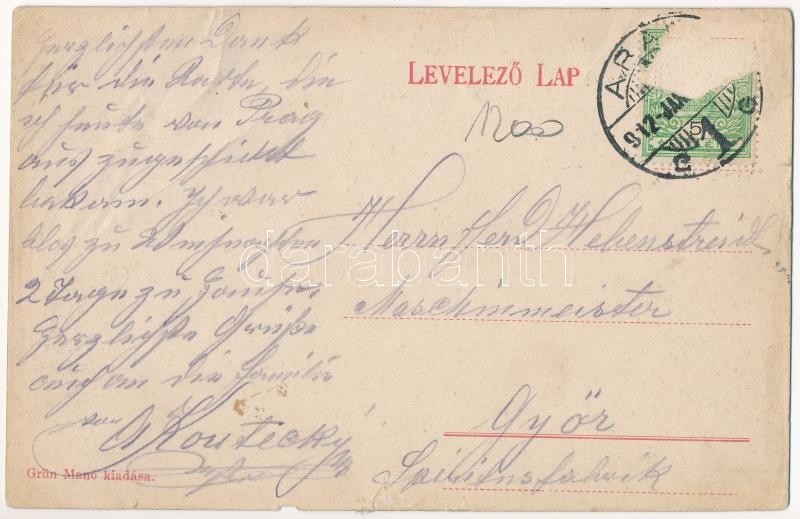 Herzlichsten Dank
für die Karte, die
ich heute von Prag
aus zugeschickt
bekam. Ich war
blos zu Weihnachten
2 Tage zu Hause.
Herzlichste Grüße
auch an die Familie
von
A Koutecky
Grün Manó kiadása.
LEVELEZŐ LAP
1200
ARA
912 JA
VIII
1
C
5
Herrn Ferd Hebenstreid
Maschinmeister
Győr
Spiritusfabrik
darabanth